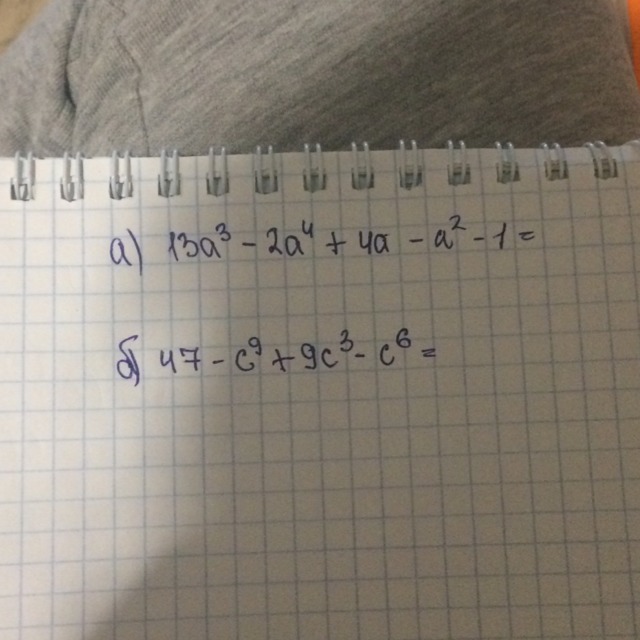 а) 13a³ - 2a⁴ + 4a - a² - 1 =
б) 47 - c⁹ + 9c³ - c⁶ =